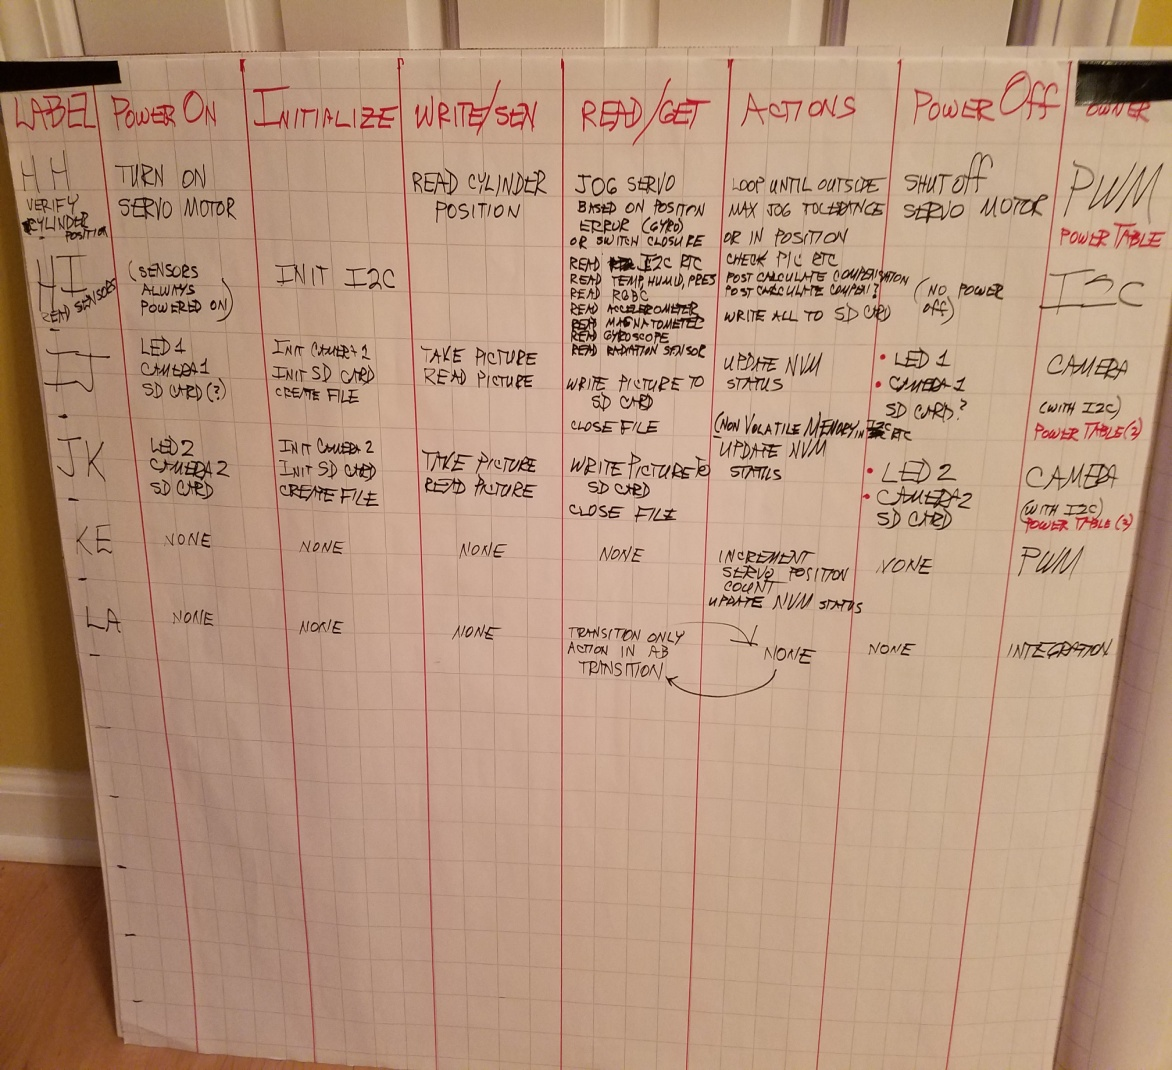 LABEL POWER ON INITIALIZE WRITE/SEN READ/GET ACTIONS POWER OFF OWNER
HH
VERIFY
CYLINDER
POSITION
TURN ON
SERVO MOTOR
READ CYLINDER
POSITION
JOG SERVO
BASED ON POSITON
ERROR (GYRO)
OR SWITCH CLOSURE
LOOP UNTIL OUTSIDE
MAX JOG TOLERANCE
OR IN POSITION
SHUT OFF
SERVO MOTOR
PWM
POWER TABLE
HI
READ SENSORS
(SENSORS
ALWAYS
POWERED ON)
INIT I2C
READ I2C RTC
READ TEMP, HUMID, PRES
READ RGBC
READ ACCELEROMETER
READ MAGNATOMETEC
READ GYROSCOPE
READ RADIATION SENSOR
CHECK PIC RTC
POST CALCULATE COMPENSATION
POST CALCULATE COMPEN?
WRITE ALL TO SD CARD
(NO POWER
OFF)
I2C
IJ
LED 1
CAMERA 1
SD CARD (?)
INIT CAMERA 1
INIT SD CARD
CREATE FILE
TAKE PICTURE
READ PICTURE
WRITE PICTURE TO
SD CARD
CLOSE FILE
UPDATE NVM
STATUS
(NON VOLATILE MEMORY IN I2C
RTC
• LED 1
• CAMERA 1
SD CARD?
CAMERA
(WITH I2C)
POWER TABLE(3)
JK
LED 2
CAMERA 2
SD CARD
INIT CAMERA 2
INIT SD CARD
CREATE FILE
TAKE PICTURE
READ PICTURE
WRITE PICTURE TO
SD CARD
CLOSE FILE
UPDATE NVM
STATUS
• LED 2
• CAMERA 2
SD CARD
CAMERA
(WITH I2C)
POWER TABLE(3)
KE
NONE
NONE
NONE
NONE
INCREMENT
SERVO POSITION
COUNT
UPDATE NVM STATUS
NONE
PWM
LA
NONE
NONE
NONE
TRANSITION ONLY
ACTION IN AB
TRANSITION
NONE
NONE
INTEGRATION